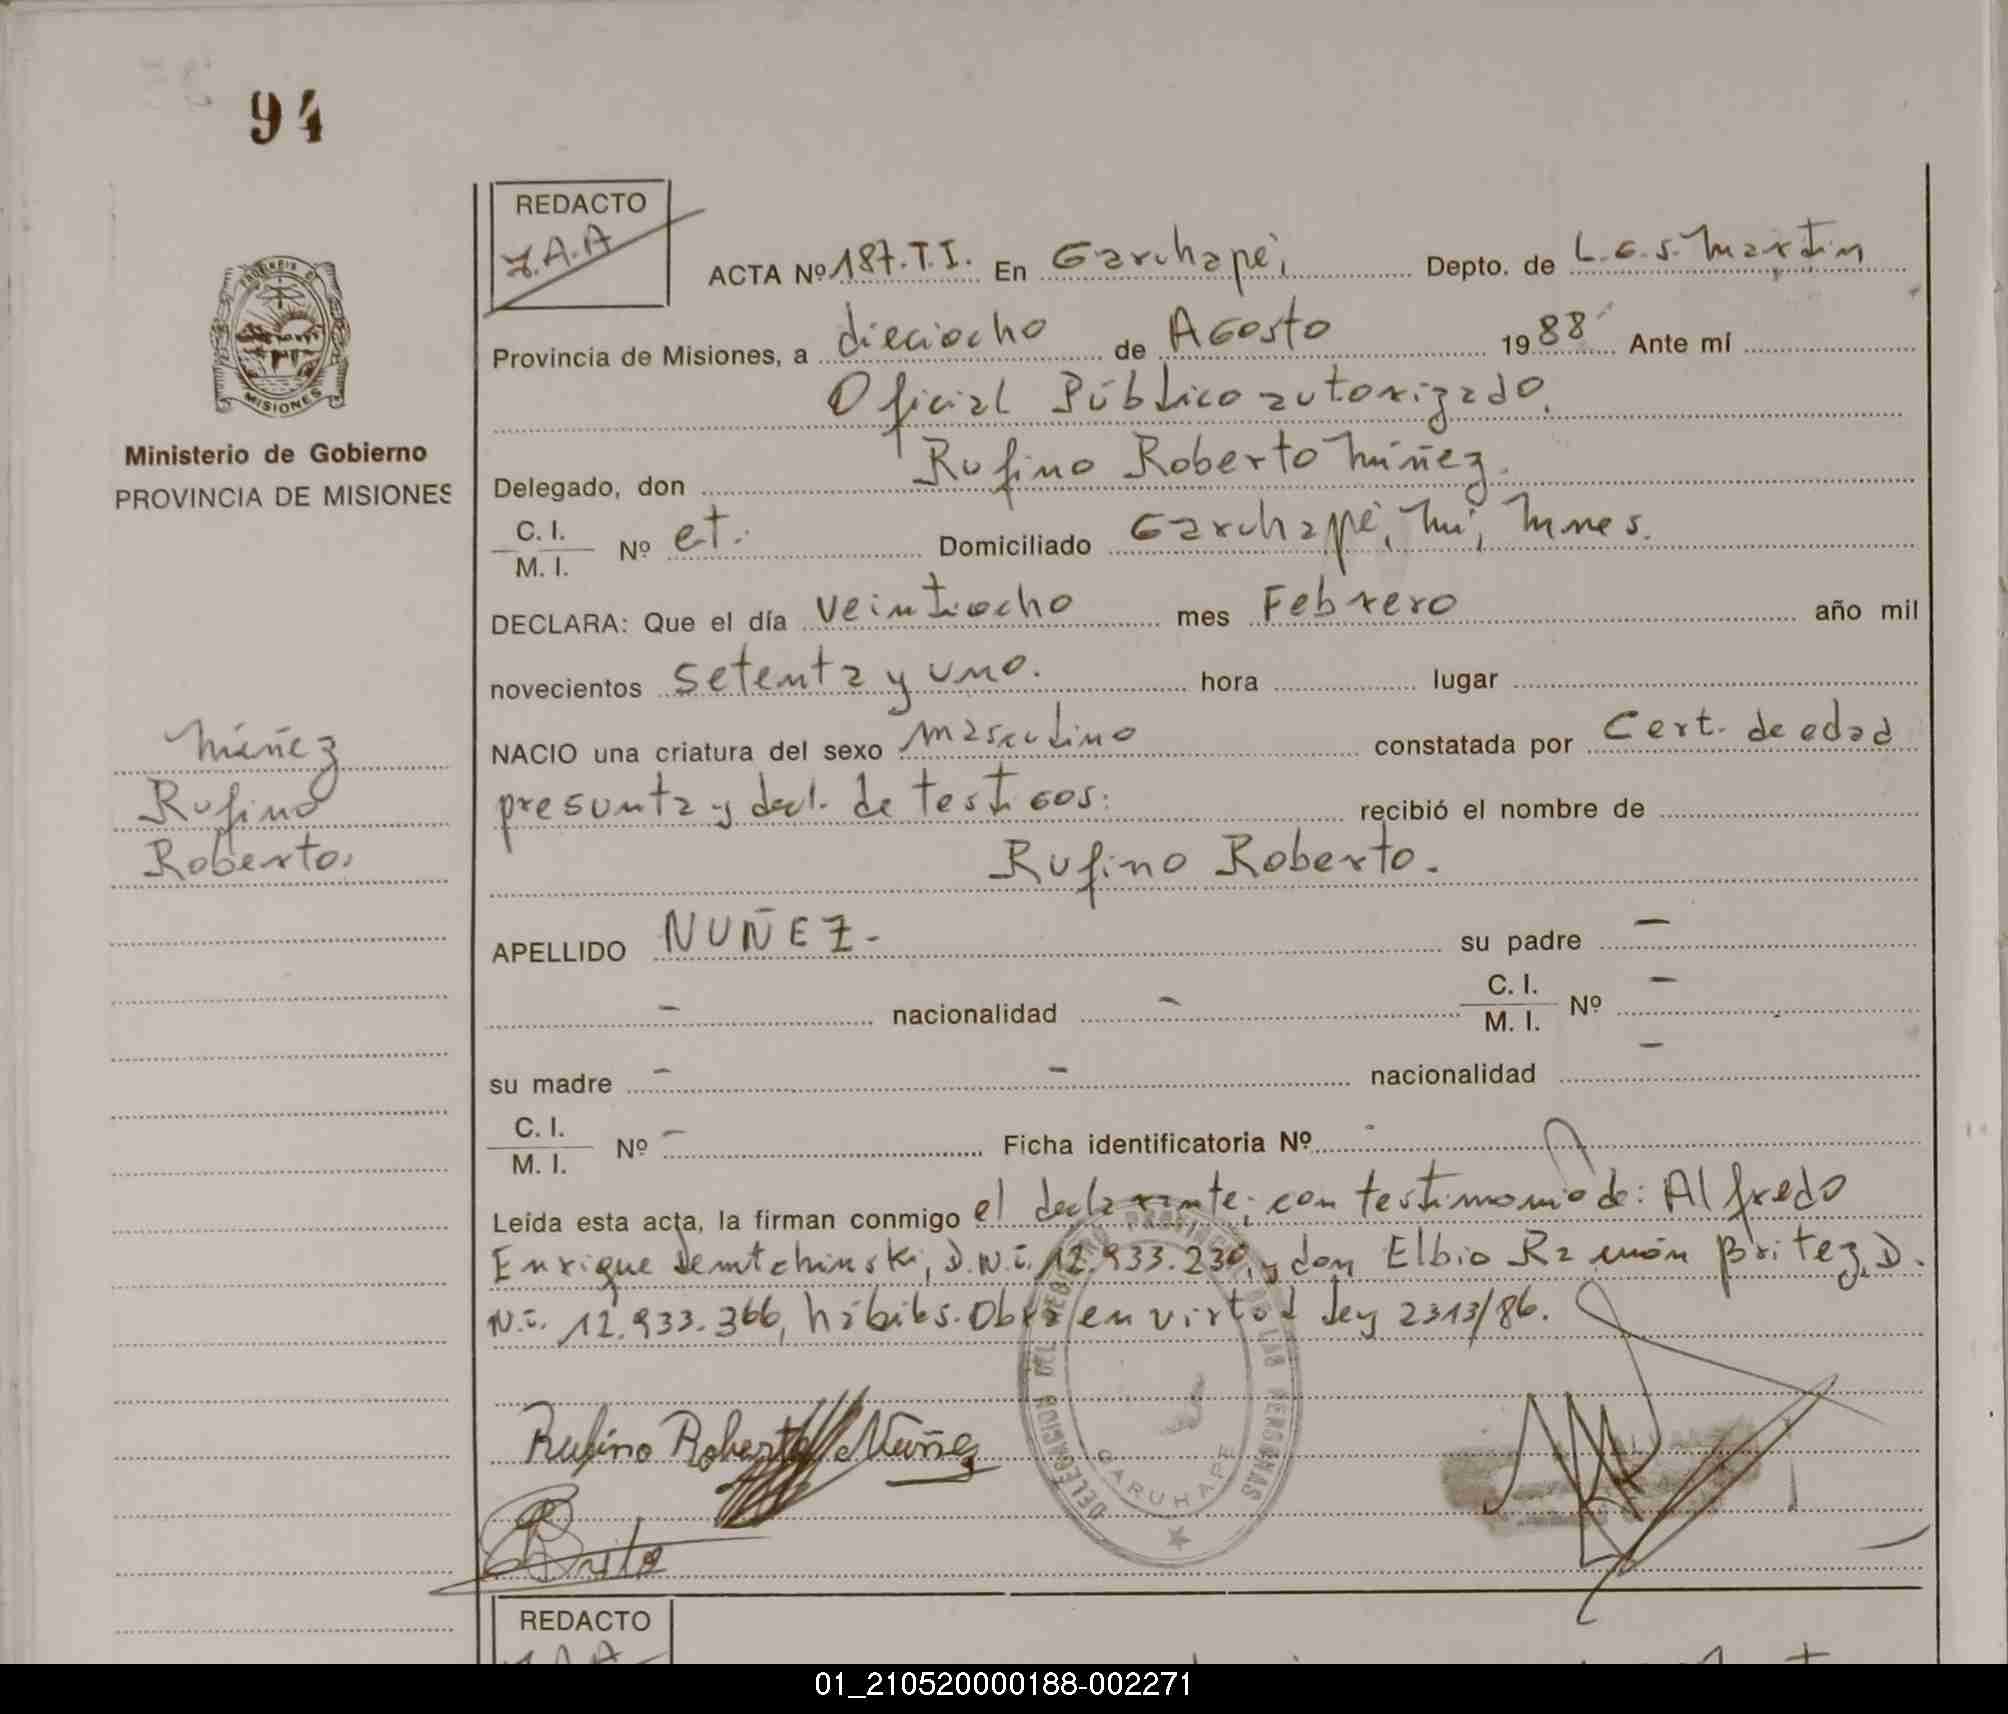 94
REDACTO
ACTA Nº 187.T.I. En Garuhapé, Depto. de L.G.S. Martin
Provincia de Misiones, a dieciocho de Agosto 1988 Ante mí
Oficial Público autorizado.
MISIONES
Ministerio de Gobierno
PROVINCIA DE MISIONES
Delegado, don Rufino Roberto Núñez.
C. I.
M. I. Nº et. Domiciliado Garuhapé, Mí, Mnes.
DECLARA: Que el día veintiocho mes Febrero año mil
novecientos setenta y uno. hora lugar
NACIO una criatura del sexo masculino constatada por Cert. de edad
presunta y decl. de testigos: recibió el nombre de
Rufino Roberto.
Núñez
Rufino
Roberto.
APELLIDO NUÑEZ - su padre -
- nacionalidad - C. I.
M. I. Nº -
su madre - - nacionalidad -
C. I.
M. I. Nº - Ficha identificatoria Nº -
Leída esta acta, la firman conmigo el declarante; con testimonio de: Alfredo
Enrique Demtchinski, D.N.i. 12.933.230, y don Elbio Ramón Britez, D.
N.i. 12.933.366, hábiles. Obra en virtud Ley 2313/86.
Rufino Roberto Núñez
DELEGACION DEL REGISTRO PROVINCIAL DE LAS PERSONAS
GARUHAPE
REDACTO
01_210520000188-002271